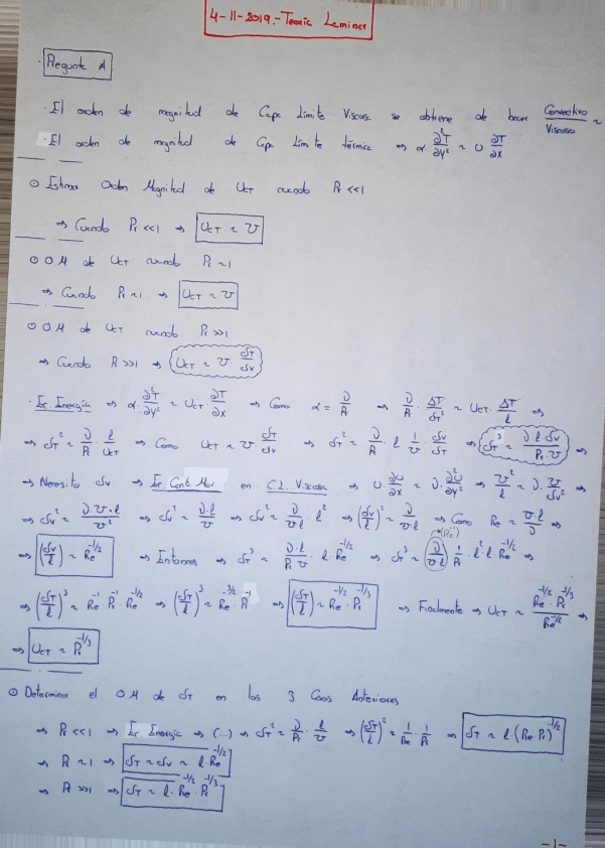 4-11-2019.- Teoría Laminar
· Pregunta A
· El orden de magnitud de Capa Límite Viscosa se obtiene de hacer Convectivo/Viscoso ~
· El orden de magnitud de Capa Límite térmica ⇒ α ∂²T/∂y² ~ U ∂T/∂x
⊙ Estimar Orden Magnitud de U_CT cuando Pr <<1
⇒ Cuando Pr <<1 ⇒ U_CT ~ U
⊙ OM de U_CT cuando Pr ~1
⇒ Cuando Pr ~1 ⇒ U_CT ~ U
⊙ OM de U_CT cuando Pr >>1
⇒ Cuando Pr >>1 ⇒ U_CT ~ U δT/δv
· Ec. Energía ⇒ α · ∂²T/∂y² ~ U_CT ∂T/∂x ⇒ Como α = ν/Pr ⇒ ν/Pr · ΔT/δT² ~ U_CT · ΔT/l ⇒
⇒ δT² ~ ν/Pr · l/U_CT ⇒ Como U_CT ~ U δT/δv ⇒ δT² ~ ν/Pr · l · 1/U · δv/δT ⇒ δT³ ~ ν·l·δv/Pr·U ⇒
⇒ Necesito δv ⇒ Ec. Cant. Mov en C.L. Viscosa ⇒ U ∂U/∂x ~ ν · ∂²U/∂y² ⇒ U²/l ~ ν · U/δv² ⇒
⇒ δv² ~ ν·U·l/U² ⇒ δv² ~ ν·l/U ⇒ δv² ~ ν/Ul l² ⇒ (δv/l)² ~ ν/Ul ⇒ Como Re ~ U·l/ν ⇒
⇒ (δv/l) ~ Re^-1/2 ⇒ Entonces ⇒ δT³ ~ ν·l/Pr·U · l Re^-1/2 ⇒ δT³ ~ (ν/U·l) 1/Pr · l²·l Re^-1/2 ⇒
(Re^-1)
⇒ (δT/l)³ ~ Re^-1 · Pr^-1 · Re^-1/2 ⇒ (δT/l)³ ~ Re^-3/2 · Pr^-1 ⇒ (δT/l) ~ Re^-1/2 · Pr^-1/3 ⇒ Finalmente ⇒ U_CT ~ Re^-1/2 · Pr^-1/3/Re^-1/2 ⇒
⇒ U_CT ~ Pr^-1/3
⊙ Determinar el OM de δT en los 3 Casos Anteriores
⇒ Pr <<1 ⇒ Ec. Energía ⇒ (...) ⇒ δT² ~ ν/Pr · l/U ⇒ (δT/l)² ~ 1/Re · 1/Pr ⇒ δT ~ l·(Re·Pr)^-1/2
⇒ Pr ~1 ⇒ δT ~ δv ~ l·Re^-1/2
⇒ Pr >>1 ⇒ δT ~ l·Re^-1/2 · Pr^-1/3
-1-